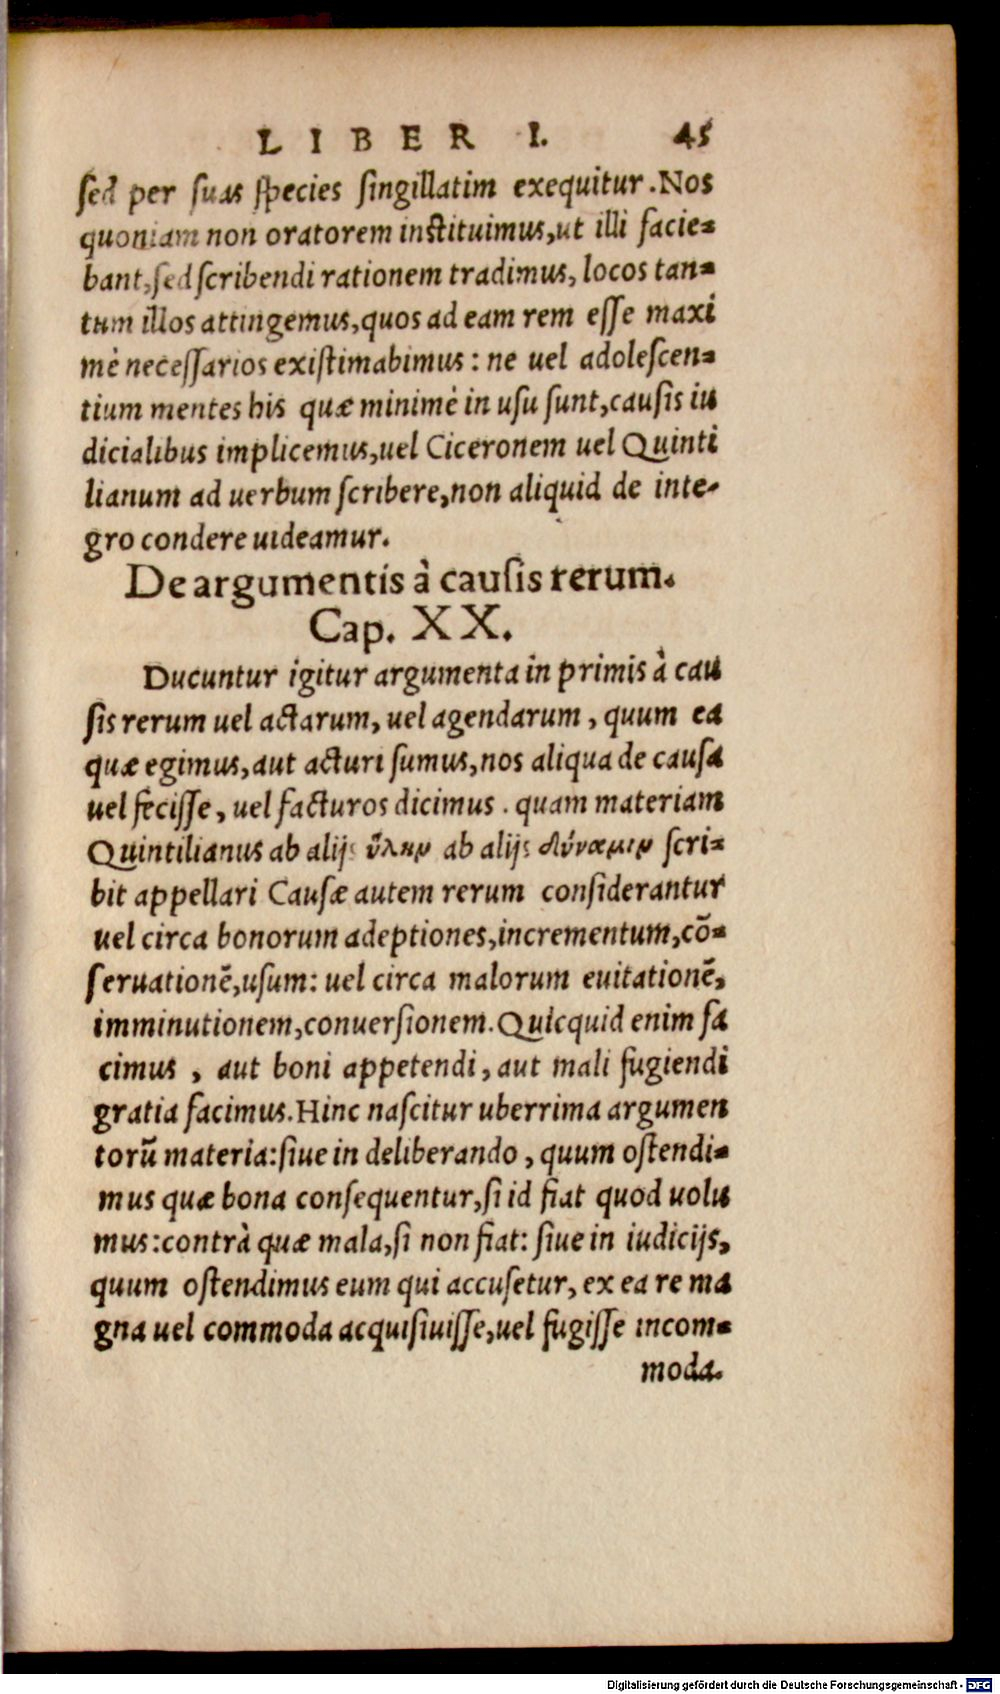 LIBER I. 45
sed per suas species singillatim exequitur. Nos
quoniam non oratorem instituimus, ut illi facie-
bant, sed scribendi rationem tradimus, locos tan-
tum illos attingemus, quos ad eam rem esse maxi
mè necessarios existimabimus: ne uel adolescen-
tium mentes his quæ minimè in usu sunt, causis iu
dicialibus implicemus, uel Ciceronem uel Quinti
lianum ad uerbum scribere, non aliquid de inte-
gro condere uideamur.
De argumentis à causis rerum.
Cap. XX.
Ducuntur igitur argumenta in primis à cau
sis rerum uel actarum, uel agendarum, quum ea
quæ egimus, aut acturi sumus, nos aliqua de causa
uel fecisse, uel facturos dicimus. quam materiam
Quintilianus ab alijs ὕλην ab alijs δύναμιν scri-
bit appellari Causæ autem rerum considerantur
uel circa bonorum adeptiones, incrementum, cō-
seruationē, usum: uel circa malorum euitationē,
imminutionem, conuersionem. Quicquid enim fa
cimus, aut boni appetendi, aut mali fugiendi
gratia facimus. Hinc nascitur uberrima argumen
torū materia: siue in deliberando, quum ostendi-
mus quæ bona consequentur, si id fiat quod uolu
mus: contrà quæ mala, si non fiat: siue in iudicijs,
quum ostendimus eum qui accusetur, ex ea re ma
gna uel commoda acquisiuisse, uel fugisse incom-
moda.
Digitalisierung gefördert durch die Deutsche Forschungsgemeinschaft - DFG